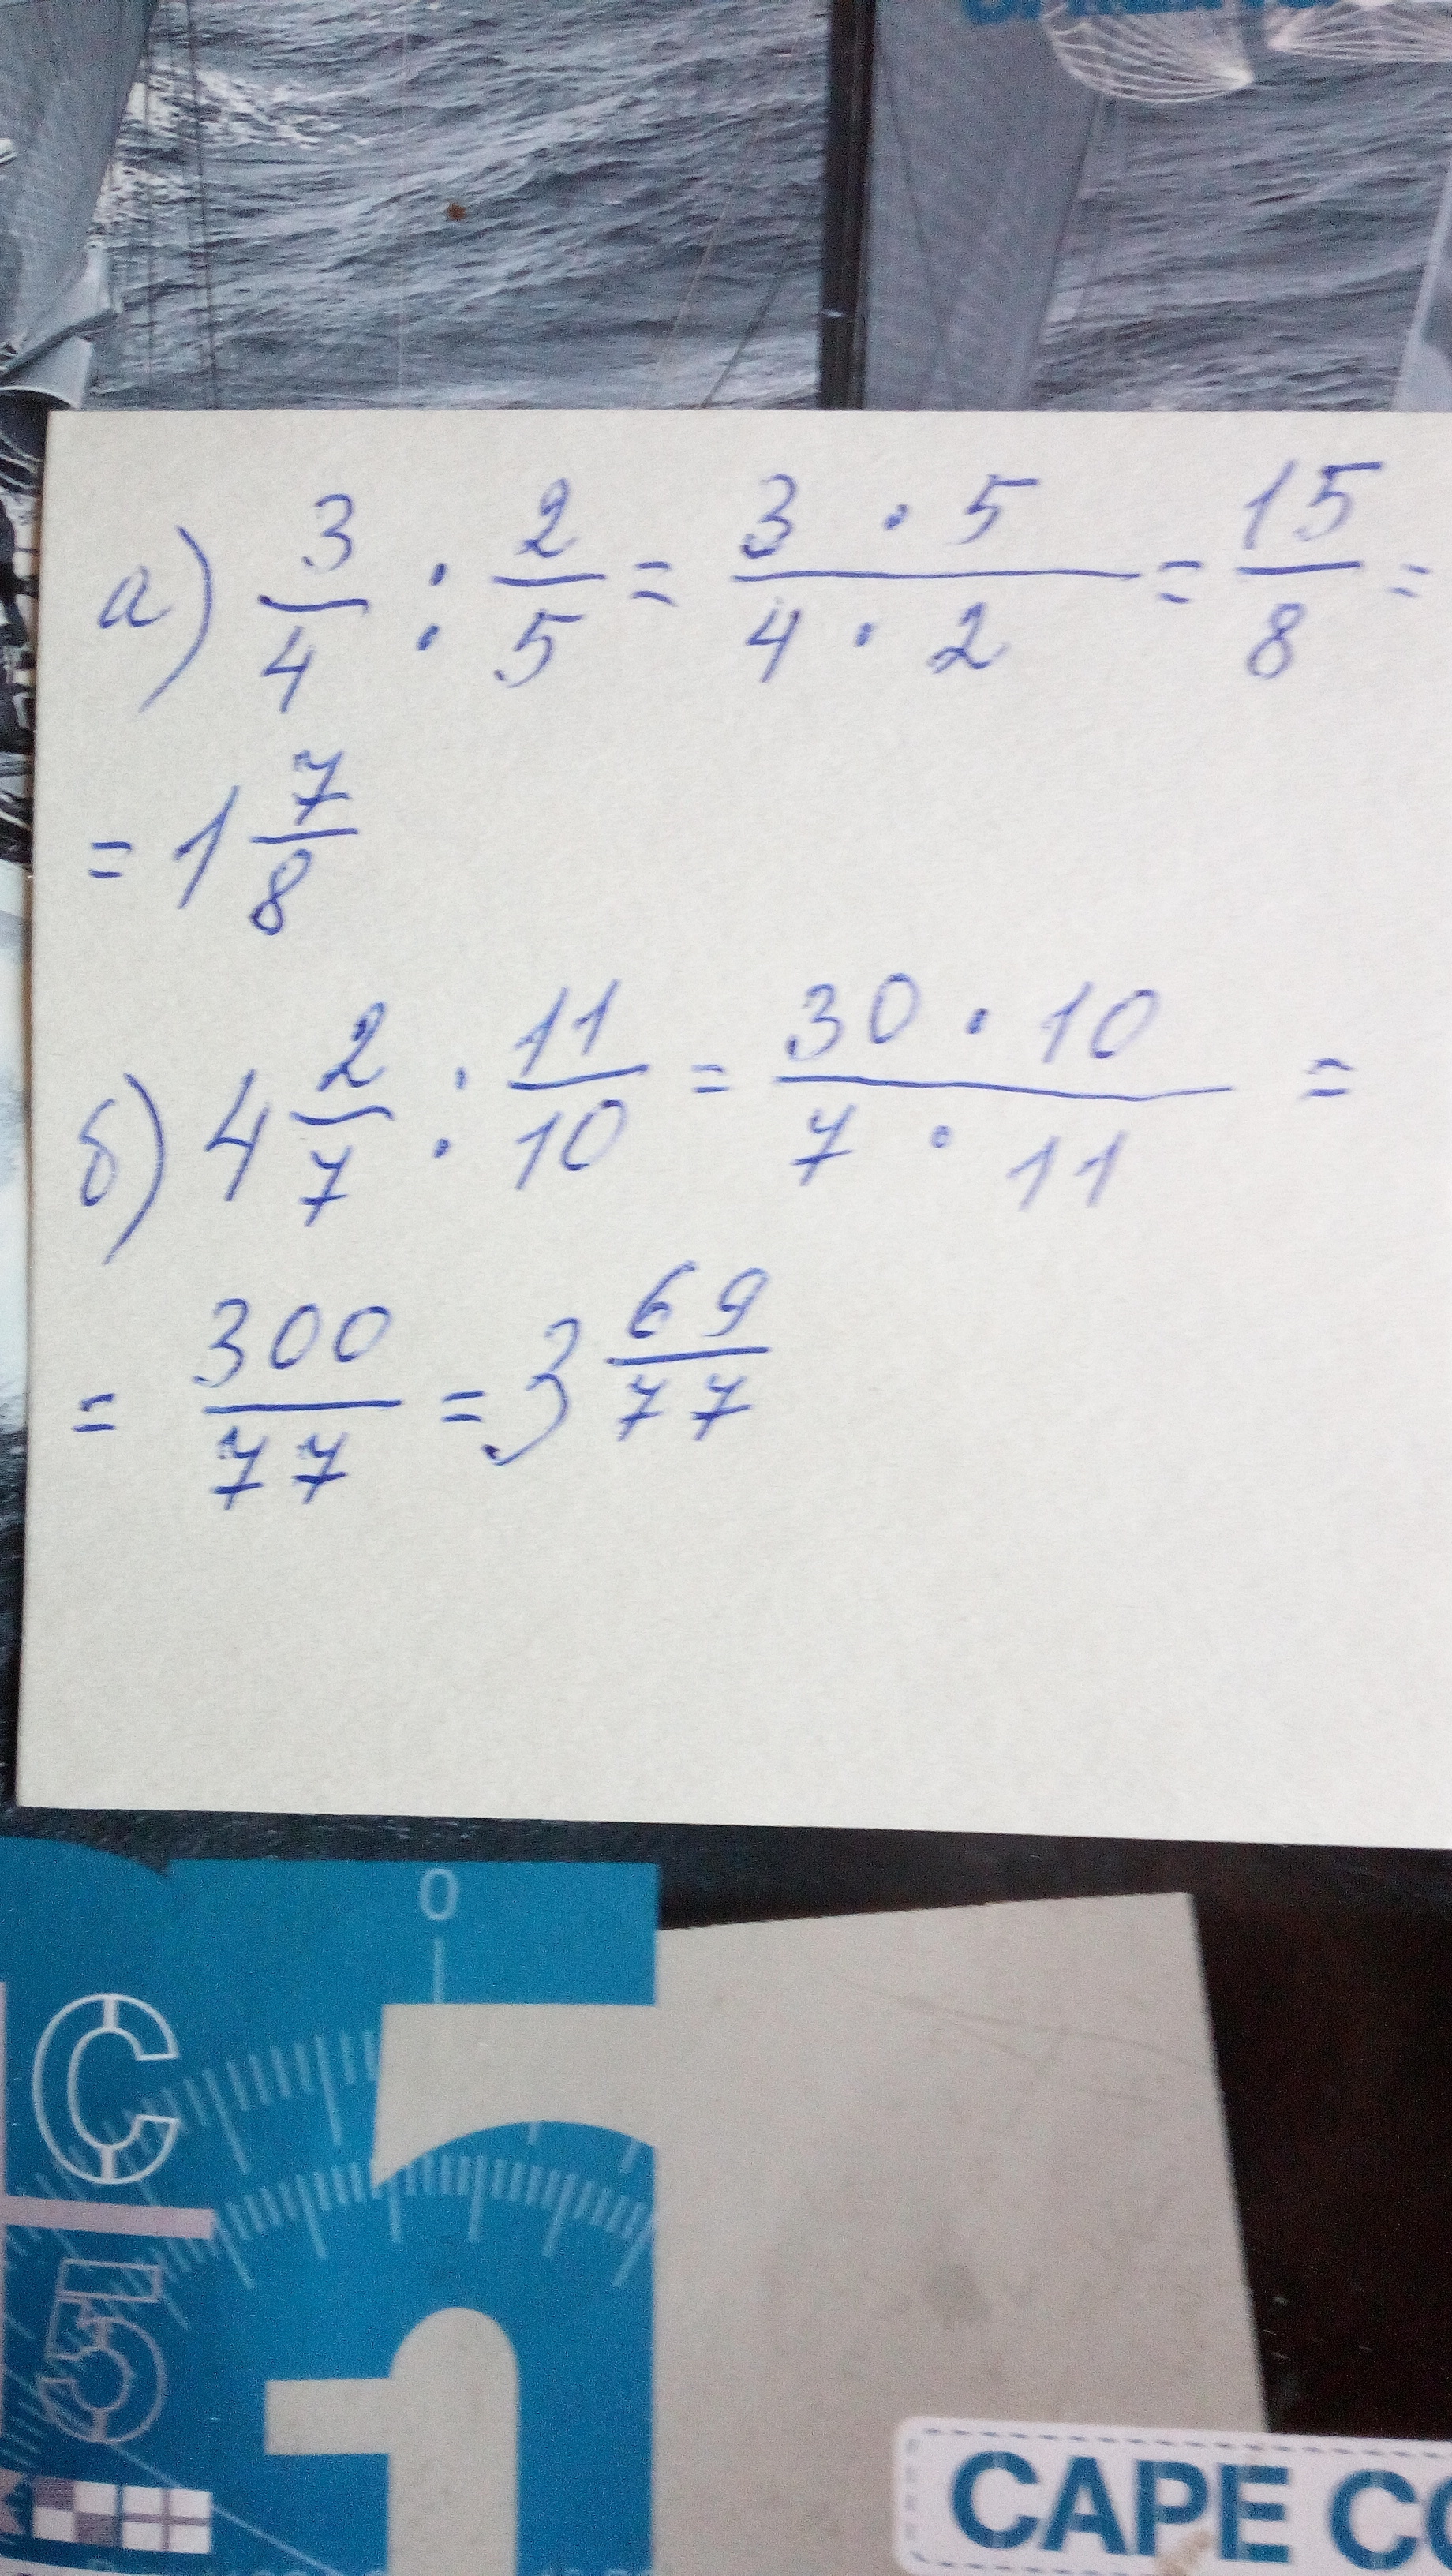 а) 3/4 : 2/5 = 3 · 5/4 · 2 = 15/8 =
= 1 7/8
б) 4 2/7 : 11/10 = 30 · 10/7 · 11 =
= 300/77 = 3 69/77
0
C
5
CAPE CO